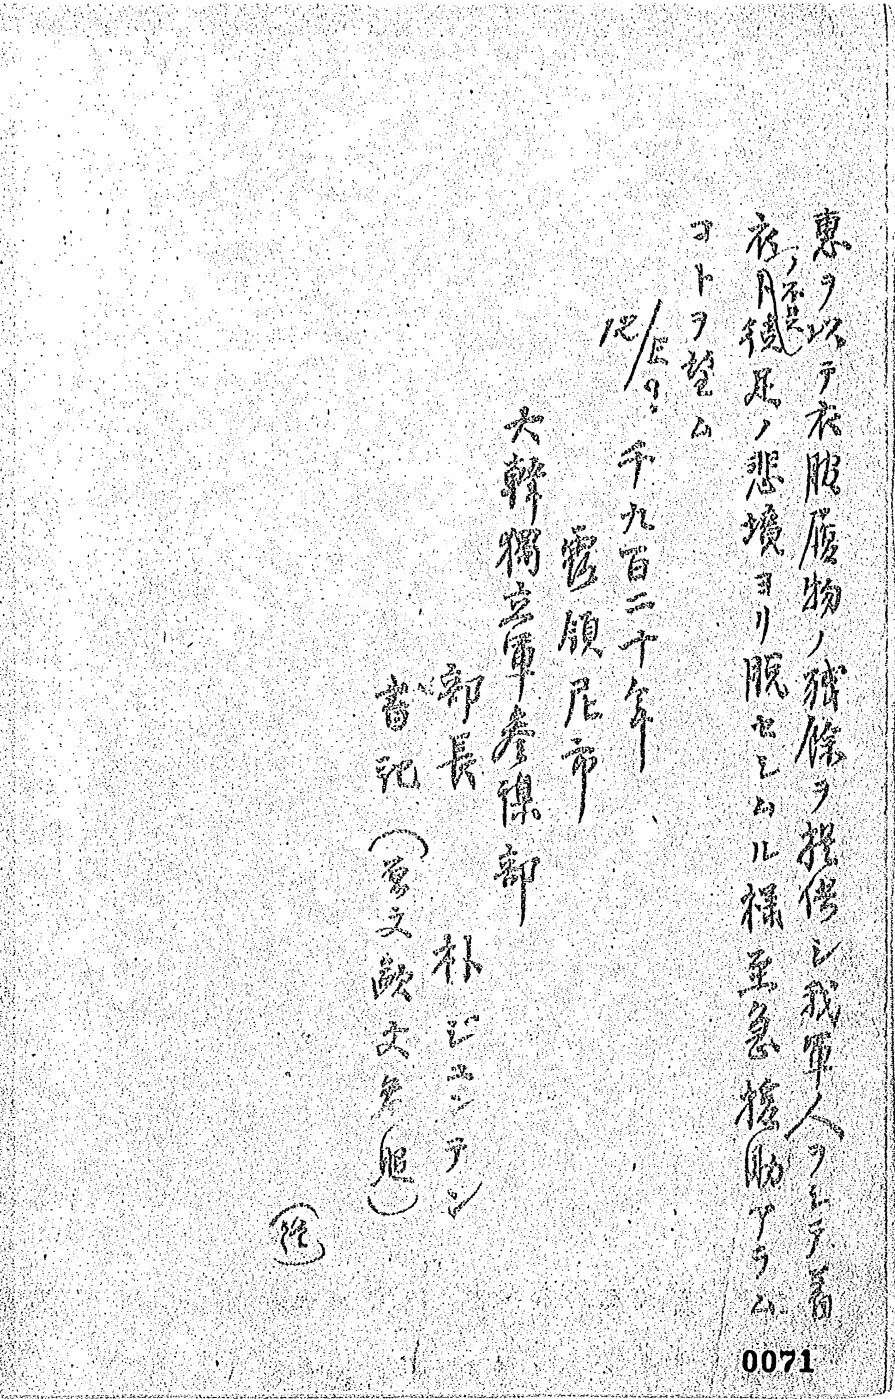 惠ヲ以テ衣服履物ノ残餘ヲ提供シ我軍人ヲシテ着
衣ノ不足ト徒足ノ悲境ヨリ脱セシムル様至急援助アラム
コトヲ望ム
千九百二十年
露領尼市
大韓獨立軍参謀部
部長 朴ジユンアン
書記
0071